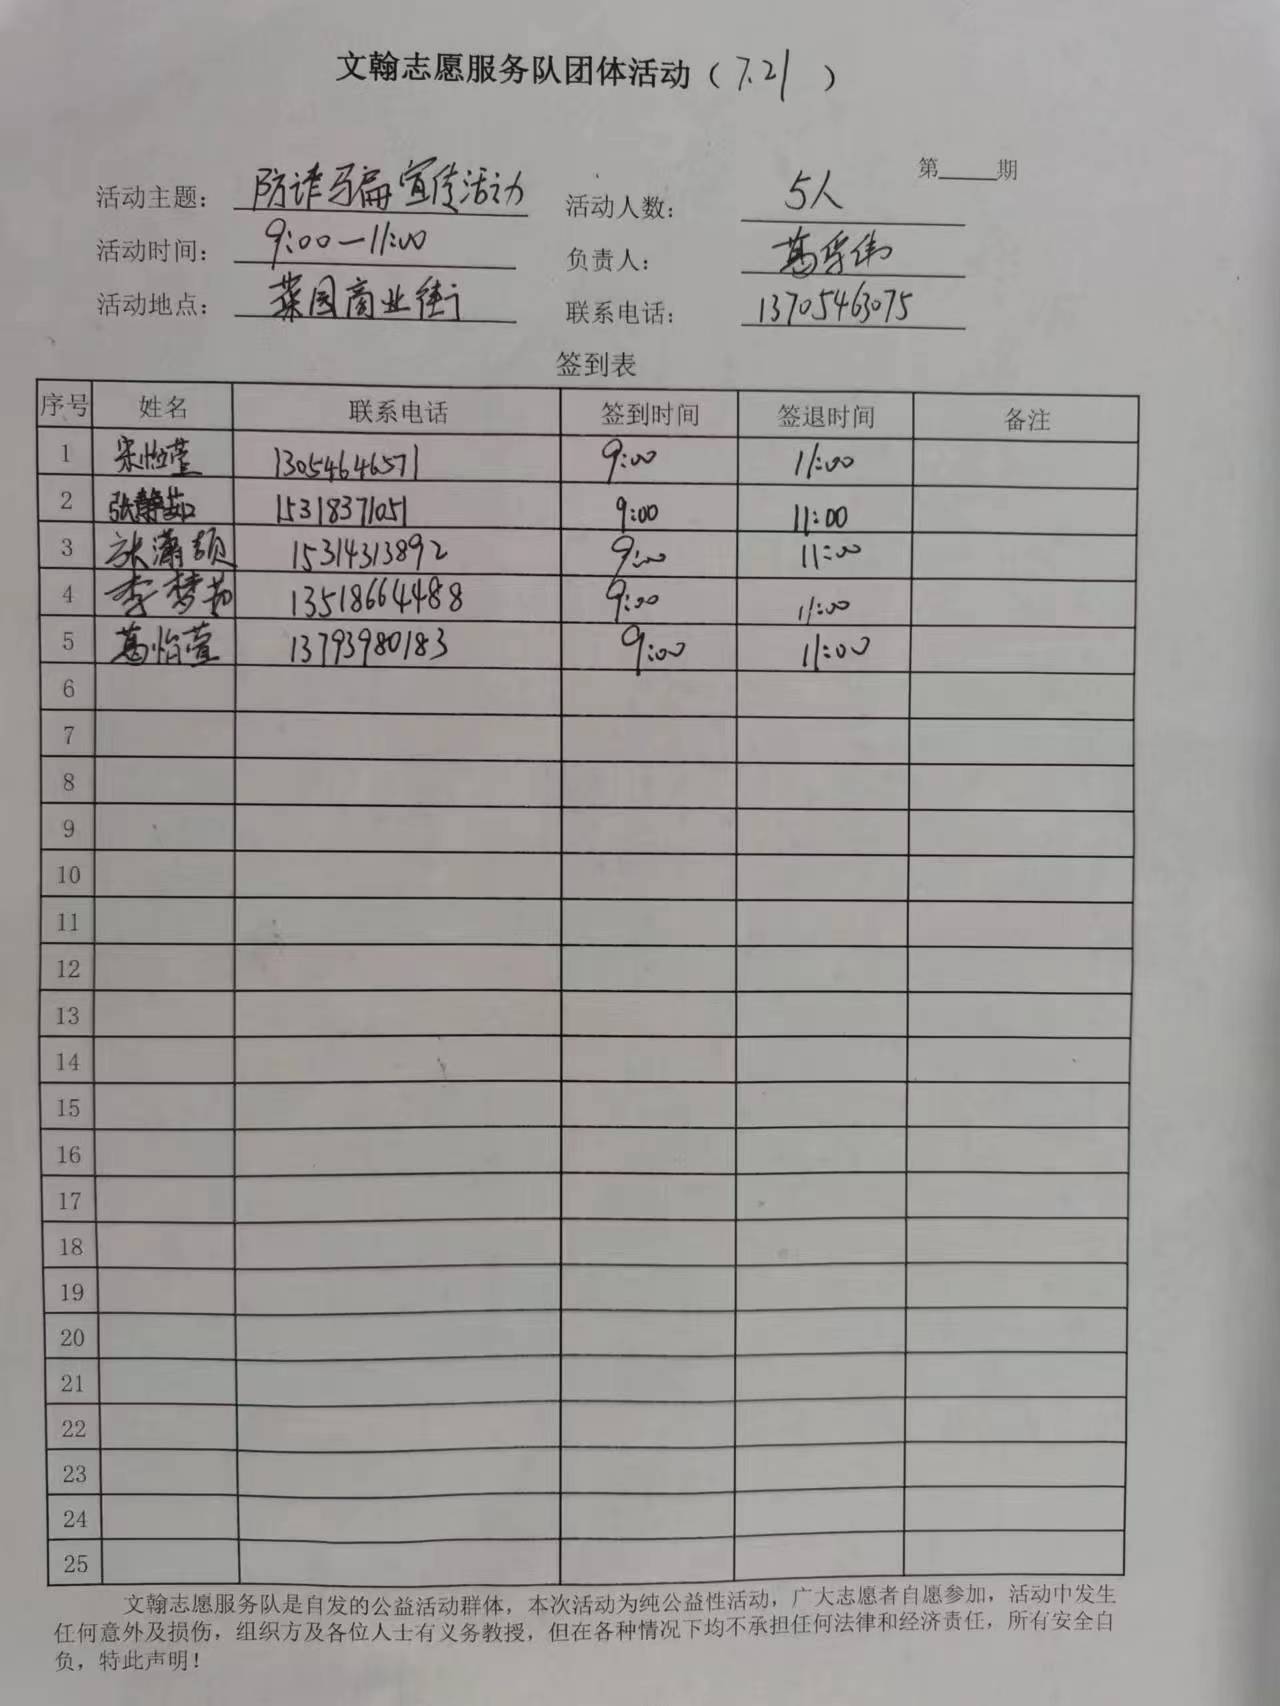 文翰志愿服务队团体活动（7.21）
第____期
活动主题：防诈骗宣传活动 活动人数：5人
活动时间：9:00—11:00 负责人：葛学伟
活动地点：菜园商业街 联系电话：13705463075
签到表
序号 姓名 联系电话 签到时间 签退时间 备注
1 宋怡萱 13054646571 9:00 11:00
2 张静茹 15318371051 9:00 11:00
3 张潇颖 15314313892 9:00 11:00
4 李梦 13518664488 9:00 11:00
5 葛怡萱 13793980183 9:00 11:00
6
7
8
9
10
11
12
13
14
15
16
17
18
19
20
21
22
23
24
25
文翰志愿服务队是自发的公益活动群体，本次活动为纯公益性活动，广大志愿者自愿参加，活动中发生
任何意外及损伤，组织方及各位人士有义务教授，但在各种情况下均不承担任何法律和经济责任，所有安全自
负，特此声明！